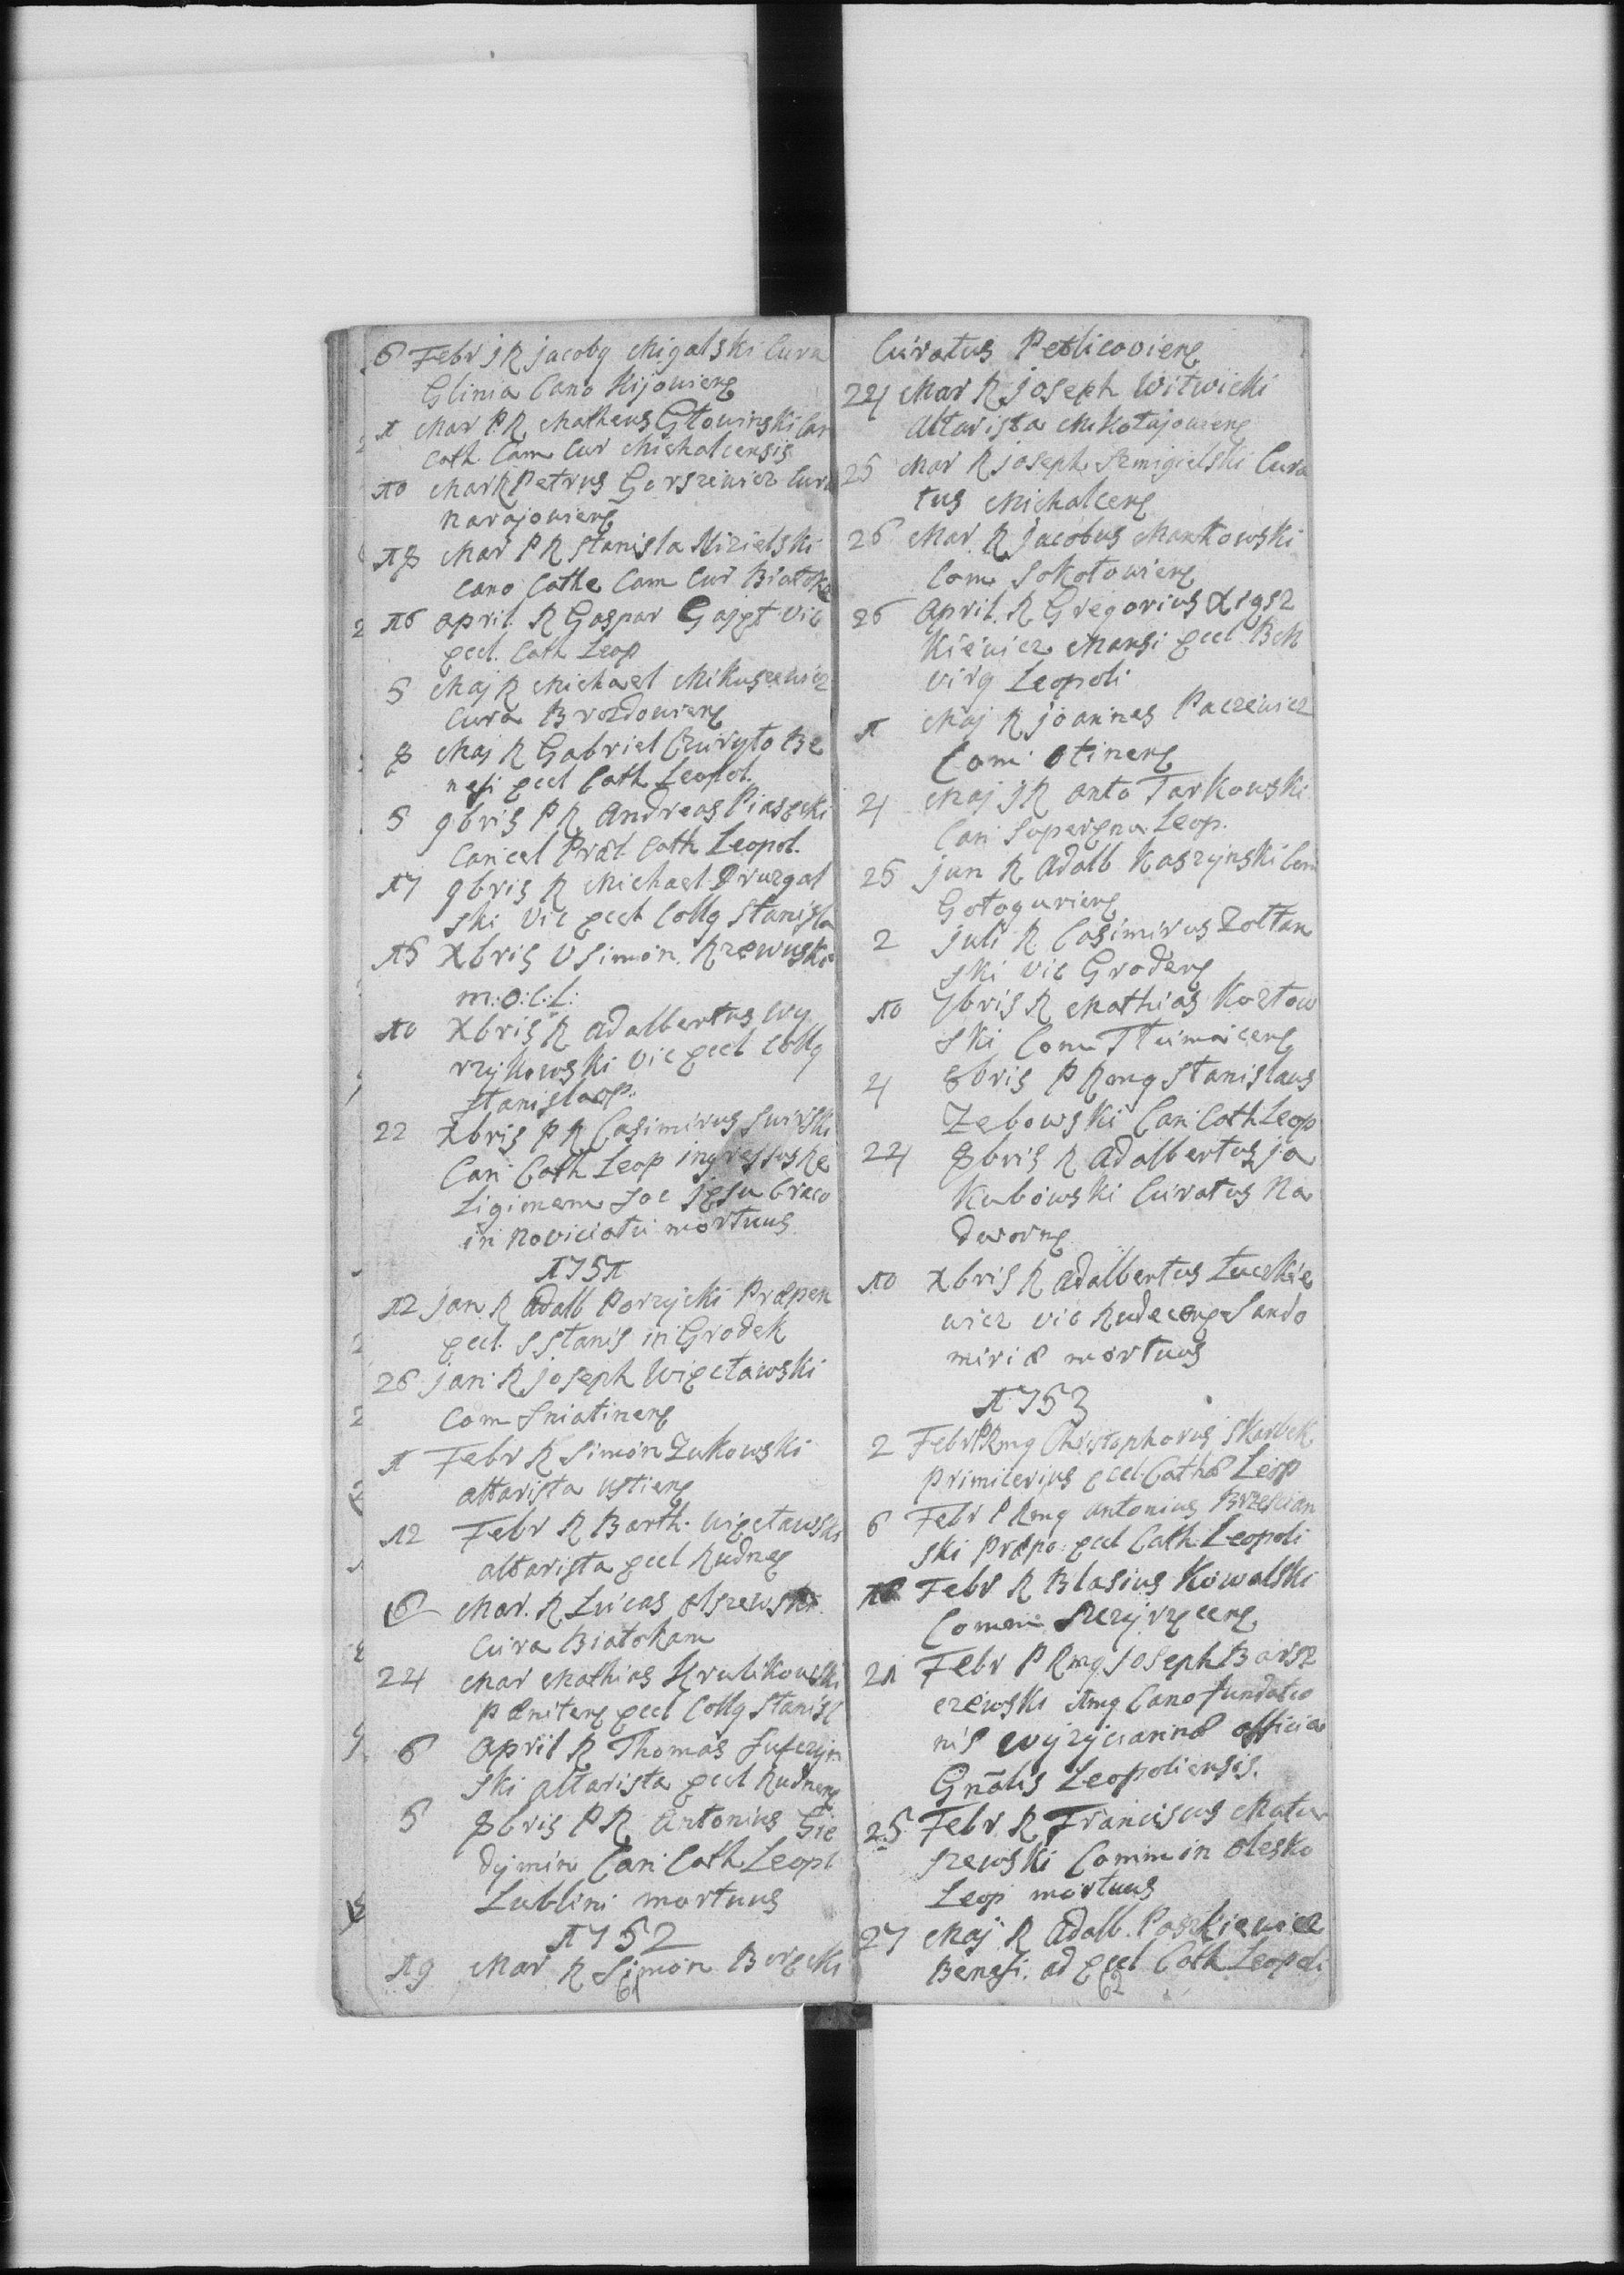 6 Febr JR Jacobq Migalski Cura
Glinia Cano Kijoviens
1 Mar PR Matheus Głowinski Can
Cath Cam Cur Michalcensis
10 Mar R Petrus Gorszewicz Cura
Narajoviens
18 Mar PR Stanisla Nizielski
Cano Cathe Cam Cur Białoka
16 April R Gaspar Gajgt Vic
Eccl. Cath Leop
5 Maj R Michael Mikuszewicz
Cura Brozdoviens
8 Maj R Gabriel Be
nefi Eccl Cath Leopol.
5 9bris PR Andreas Piasecki
Cancel Præl Cath Leopol.
17 9bris R Michael Druzgal
ski Vic Eccl Collg Stanisla
15 Xbris V Simon Rzewuski
M:O:C:L:
10 Xbris R Adalbertus Wy
rzykowski Vic Eccl Collg
Stanislaop.
22 Xbris PR Casimirus Swirski
Can Cath Leop ingressus Re
ligionem Soc Jesu Craco
in Noviciatu mortuus
1751
12 Jan R Adalb Porzycki Præpen
Eccl. S Stanis in Grodek
26 Jan R Joseph Więcławski
Com Sniatinens
1 Febr R Simon Zukowski
altarista Ustiens
12 Febr R Barth. Więcławski
altarista Eccl Rudnes
16 Mar. R Lucas Olszewski
Cura Białokam
24 Mar Mathias Krulikowski
Pœnitens Eccl Collg Stanisl
6 April R Thomas Sufczyn
ski altarista Eccl Rudnens
5 8bris PR Antonius Gie
dymin Can Cath Leopl
Lublini mortuus
1752
19 Mar R Simon Borecki
61
Curatus Petlicoviens
24 Mar R Joseph Witwicki
Altarista Mikołajoviens
25 Mar R Joseph Szmigielski Cura
tus Michalcens
26 Mar R Jacobus Mankowski
Com Sokołoviens
26 April. R Gregorius
kiewicz Mansi Eccl BM
Virg Leopoli
1 Maj R Joannes Paczewicz
Com Otinens
4 Maj JR Anto Tarkowski
Can Supernu Leop.
25 Jun R Adalb Kaszynski Com
Gołoguriens
2 Juli R Casimirus Zołtan
ski Vic Grodens
10 7bris R Mathias Kozłow
ski Com Tłumacens
4 8bris P Rmg Stanislaus
Zebowski Can Cath Leop
24 8bris R Adalbertus Ja
kubowski Curatus Na
dworns
10 Xbris R Adalbertus Łuczkie
wicz Vic Rudecens Sando
miriæ mortuus
1753
2 Febr P Rmg Christophorus Skarbek
Primicerius Eccl. Cathæ Leop
6 Febr P Rmg Antonius Brzescian
ski Præpo Eccl Cath Leopoli
18 Febr R Blasius Kowalski
Comen Szczyrzecens
21 Febr P Rmg Joseph Barsz
czewski Cano fundatio
nis Wyzycianinæ officia
Gnãlis Leopoliensis.
25 Febr R Franciscus Matu
szewski Commin Olesko
Leop mortuus
27 Maj R Adalb. Paszkiewicz
Benefi. ad Eccl Cath Leopoli
62